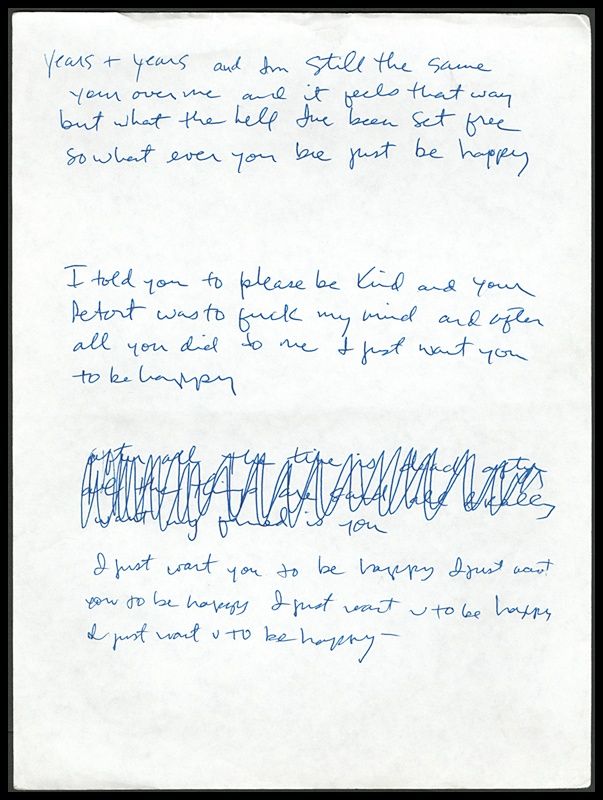 Years + years and Im still the same
your over me and it feels that way
but what the hell I've been set free
so what ever you be just be happy
I told you to please be kind and your
Retort was to fuck my mind and after
all you did to me I just want you
to be happy
after all the time is dead after
all the
is you
I just want you to be happy I just want
you to be happy I just want u to be happy
I just want u to be happy —